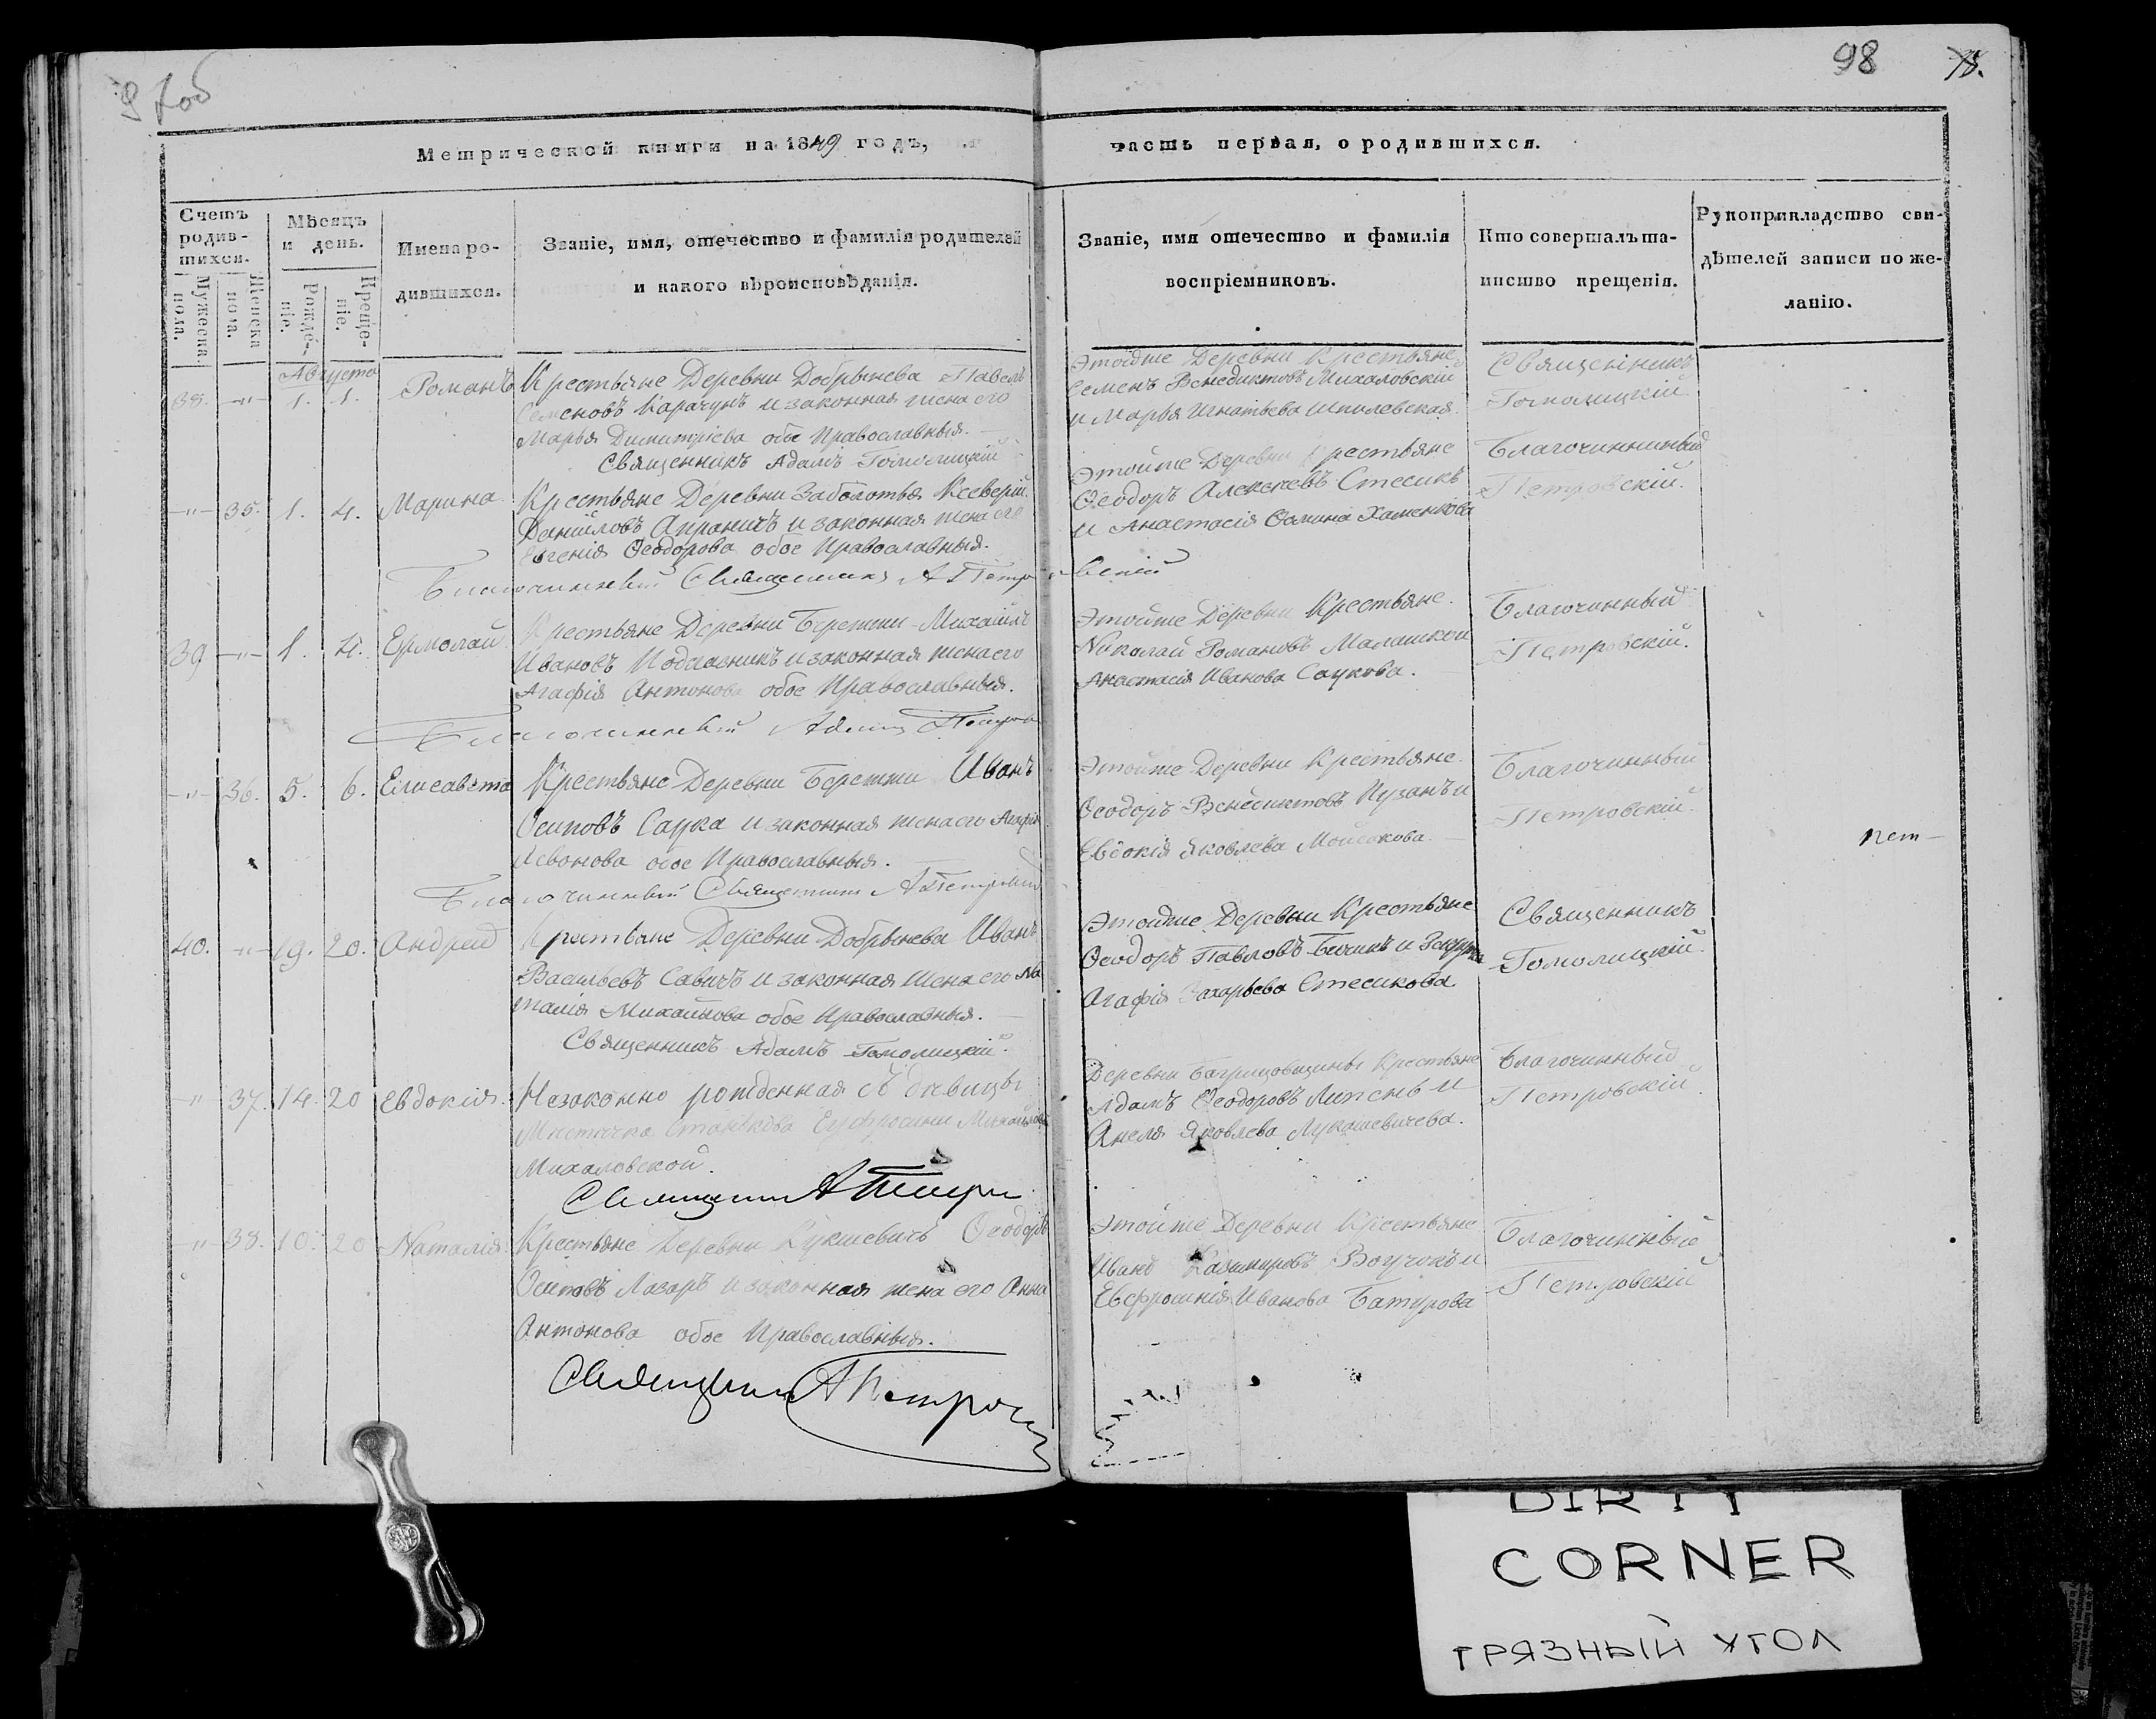 97об
98
Метрической книги на 1849 годъ,
часть первая, о родившихся.
Счетъ родив-
шихся.
Мужеска пола.
Женска пола.
Мѣсяцъ и день.
Рожде-
ніе.
Креще-
ніе.
Имена ро-
дившихся.
Званіе, имя, отечество и фамилія родителей
и какого вѣроисповѣданія.
Званіе, имя отечество и фамилія
воспріемниковъ.
Кто совершалъ та-
инство крещенія.
Рукоприкладство сви-
дѣтелей записи по же-
ланію.
Августа
38. -"- 1. 1. Романъ
Крестьяне Деревни Добрынева Павелъ
Семеновъ Карачунъ и законная жена его
Марья Димитріева обое Православныя.
Священникъ Адамъ Гомолицкій
Этойже Деревни Крестьяне
Семенъ Венедиктовъ Михаловскій
и Марья Игнатьева Шпилевская.
Священникъ
Гомолицкій.
-"- 35. 1. 4. Марина
Крестьяне Деревни Заболотья Ксеверій
Даниловъ и законная жена его
Евгенія Ѳеодорова обое Православныя.
Благочинный Священникъ А Петровскій
Этойже Деревни Крестьяне
Ѳеодоръ Алексѣевъ Стесикъ
и Анастасія Хаменкова
Благочинный
Петровскій.
39 -"- 1. 4. Ермолай
Крестьяне Деревни Бережни Михайлъ
Ивановъ и законная жена его
Агафія Антонова обое Православныя.
Благочинный Адамъ
Этойже Деревни Крестьяне
Николай Романовъ
Анастасія Иванова Саукова.
Благочинный
Петровскій.
-"- 36. 5. 6. Елисавета
Крестьяне Деревни Бережни Иванъ
Осиповъ Саука и законная жена его Агафія
Левонова обое Православныя.
Благочинный Священникъ А Петровскій
Этойже Деревни Крестьяне
Ѳеодоръ Венедиктовъ Пузанъ и
Евдокія Яковлева
Благочинный
Петровскій.
нет
40. -"- 19. 20. Андрей
Крестьяне Деревни Добрынева Иванъ
Васильевъ Савичъ и законная жена его На
талія Михайлова обое Православныя.
Священникъ Адамъ Гомолицкій.
Этойже Деревни Крестьяне
Ѳеодоръ Павловъ
Агафія Захарьева Стесикова.
Священникъ
Гомолицкій.
-"- 37. 14. 20 Евдокія.
Незаконно рожденная отъ дѣвицы
Мѣстечка Станькова Ефросини
Михаловской.
Священникъ А Петровскій
Деревни Крестьяне
Адамъ Ѳеодоровъ Липень и
Анеля Яковлева Лукашевичева.
Благочинный
Петровскій.
" 38. 10. 20 Наталія
Крестьяне Деревни Кукшевичъ Ѳеодоръ
Осиповъ Лазаръ и законная жена его Анна
Антонова обое Православныя.
Священникъ А Петров
Этойже Деревни Крестьяне
Иванъ Казимировъ и
Евфросинія Иванова Батурова
Благочинный
Петровскій
DIRTY
CORNER
ГРЯЗНЫЙ УГОЛ